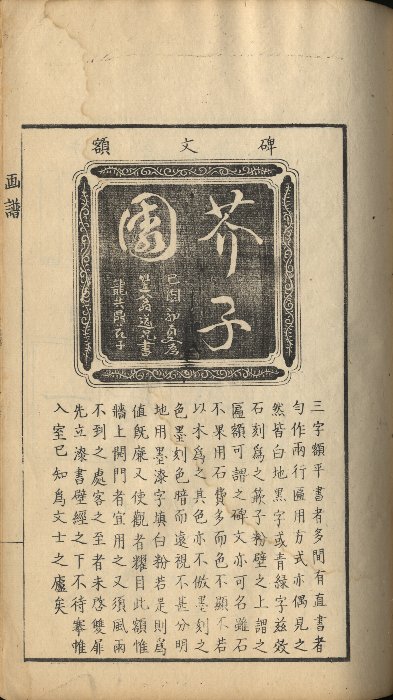 碑文額
芥子
園
己酉初夏為
笠翁道兄書
龔鼎孳
三字額平書者多間有直書者
勻作兩行匾用方式亦偶見之
然皆白地黑字或青綠字茲效
石刻為之嵌于粉壁之上謂之
匾額可謂之碑文亦可名雖石
不果用石費多而色不顯不若
以木為之其色亦不倣墨刻之
色墨刻色暗而遠視不甚分明
地用墨漆字填白粉若是則為
值既廉又使觀者耀目此額惟
牆上開門者宜用之又須風雨
不到之處客之至者未啓雙扉
先立漆書壁經之下不待搴帷
入室已知為文士之廬矣
画譜